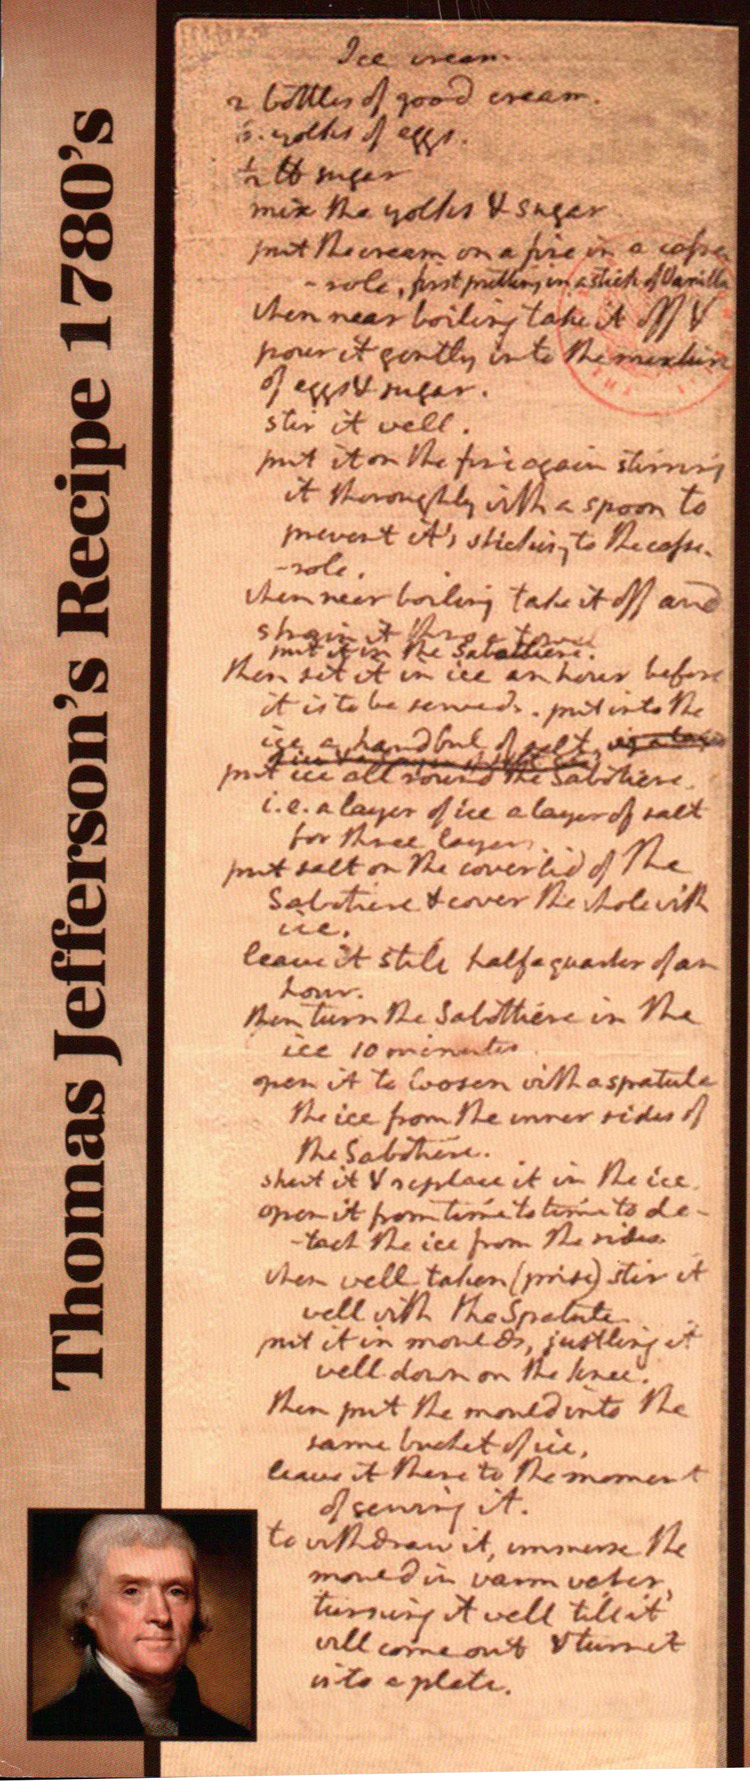 Thomas Jefferson's Recipe 1780's
Ice cream.
2 bottles of good cream.
6. yolks of eggs.
½ ℔ sugar
mix the yolks & sugar
put the cream on a fire in a casse-
-role, first putting in a stick of Vanilla
when near boiling take it off &
pour it gently into the mixture
of eggs & sugar.
stir it well.
put it on the fire again stirring
it thoroughly with a spoon to
prevent it's sticking to the casse-
-role.
when near boiling take it off and
strain it thro' a towel
put it in the Sabottiere.
then set it in ice an hour before
it is to be served. put into the
ice a handful of salt
put ice all round the Sabotiere.
i.e. a layer of ice a layer of salt
for three layers.
put salt on the coverlid of the
Sabotiere & cover the whole with
ice.
leave it still half a quarter of an
hour.
then turn the Sabottiere in the
ice 10 minutes
open it to loosen with a spatula
the ice from the inner sides of
the Sabotiere.
shut it & replace it in the ice.
open it from time to time to de-
-tach the ice from the sides
when well taken (prise) stir it
well with the Spatula.
put it in moulds, justling it
well down on the knee.
then put the mould into the
same bucket of ice.
leave it there to the moment
of serving it.
to withdraw it, immerse the
mould in warm water,
turning it well till it
will come out & turn it
into a plate.